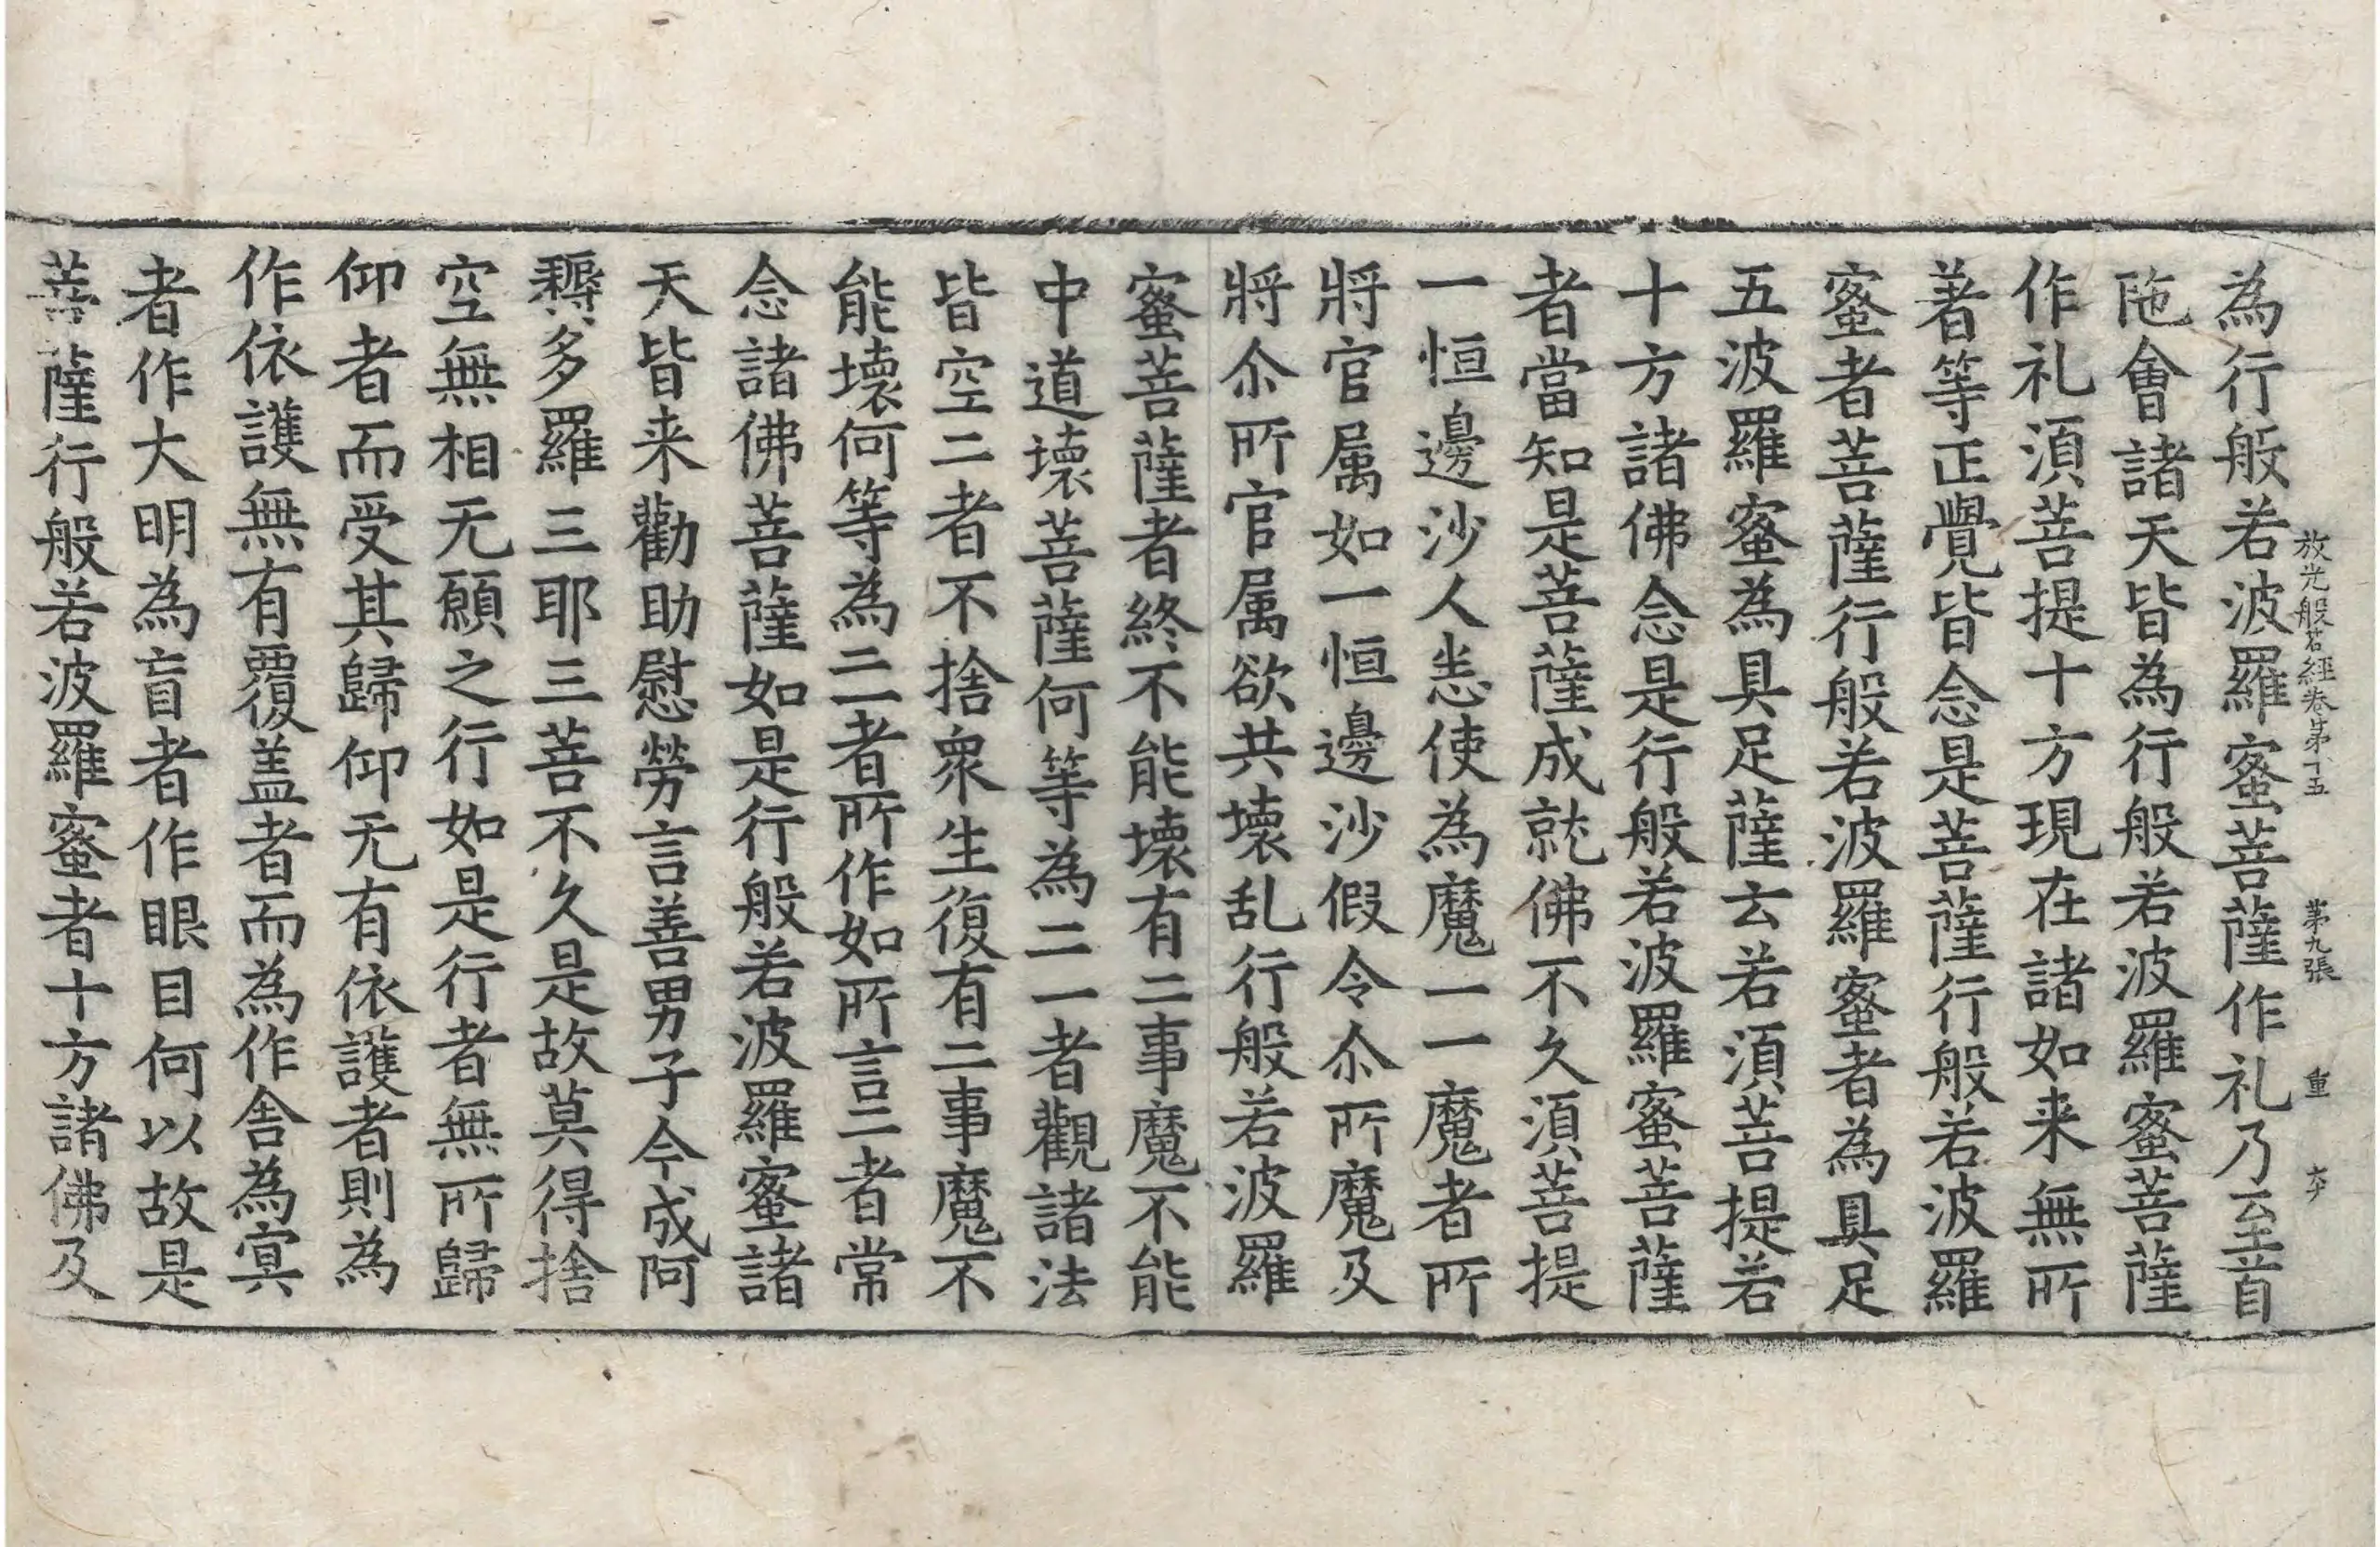 放光般若經卷第十五 第九張 重
為行般若波羅蜜菩薩作礼乃至首
陁會諸天皆為行般若波羅蜜菩薩
作礼須菩提十方現在諸如来無所
著等正覺皆念是菩薩行般若波羅
蜜者菩薩行般若波羅蜜者為具足
五波羅蜜為具足薩云若須菩提若
十方諸佛念是行般若波羅蜜菩薩
者當知是菩薩成就佛不久須菩提
一恒邊沙人恙使為魔一一魔者所
將官属如一恒邊沙假令尒所魔及
將尒所官属欲共壊乱行般若波羅
蜜菩薩者終不能壊有二事魔不能
中道壊菩薩何等為二一者觀諸法
皆空二者不捨衆生復有二事魔不
能壊何等為二一者所作如所言二者常
念諸佛菩薩如是行般若波羅蜜諸
天皆来勸助慰勞言善男子今成阿
耨多羅三耶三菩不久是故莫得捨
空無相无願之行如是行者無所歸
仰者而受其歸仰无有依護者則為
作依護無有覆盖者而為作舎為㝠
者作大明為盲者作眼目何以故是
菩薩行般若波羅蜜者十方諸佛及